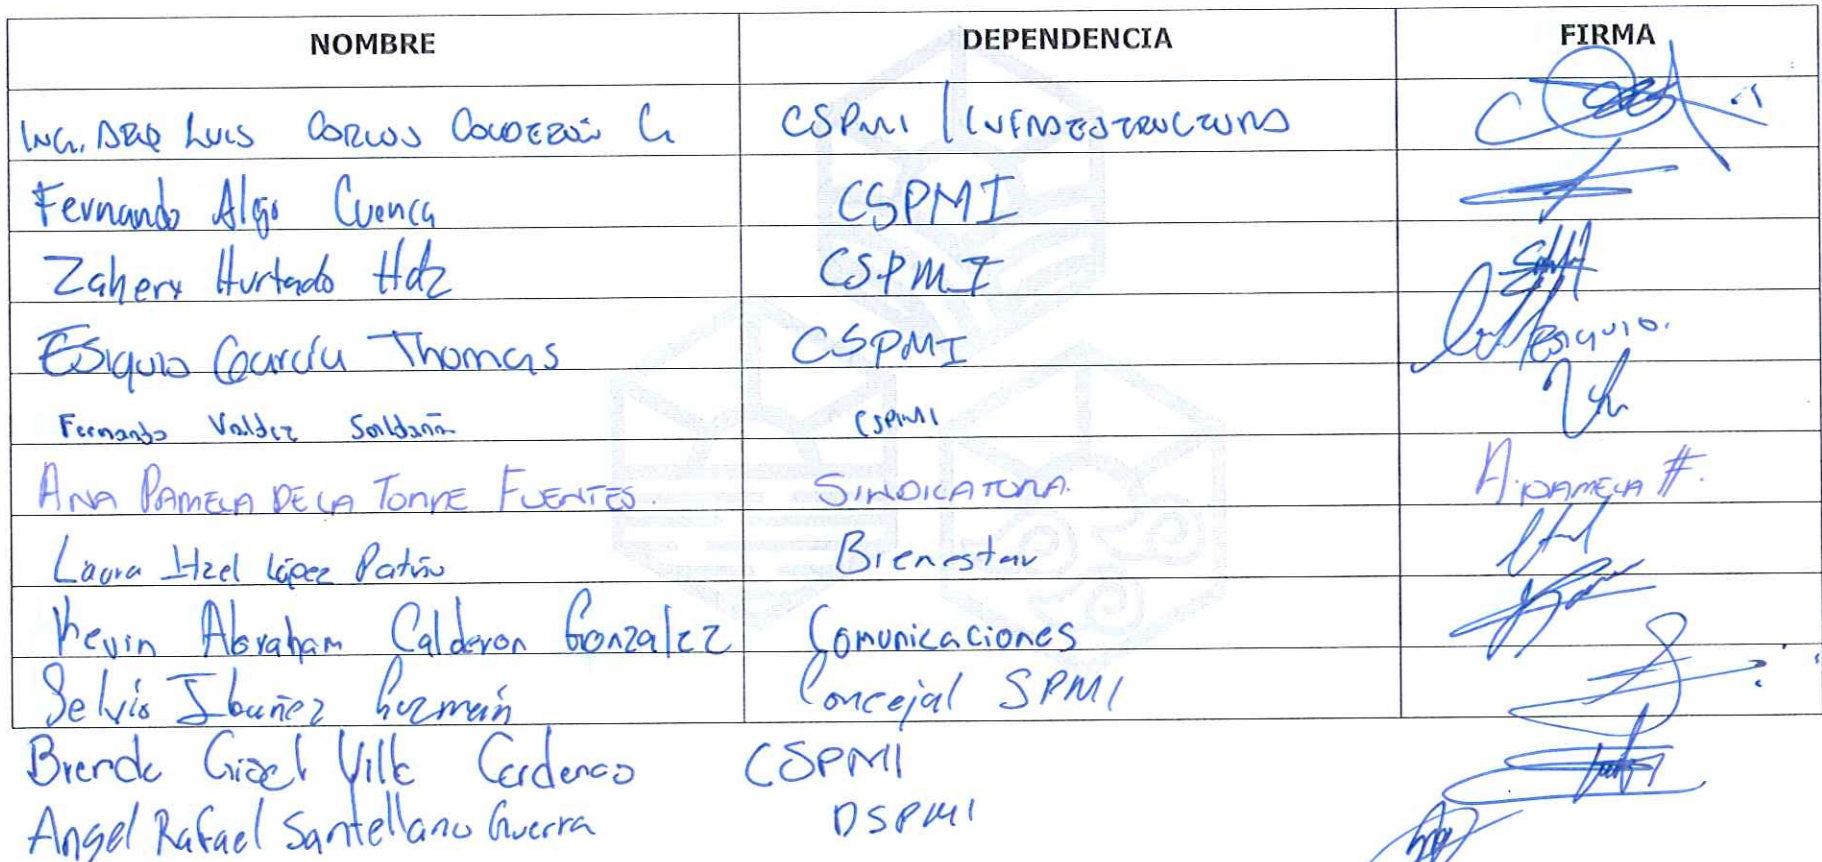 NOMBRE DEPENDENCIA FIRMA
ING. ARQ LUIS CARLOS CALDERÓN G. CSPMI / INFRAESTRUCTURA
Fernando Alejo Cuenca CSPMI
Zahery Hurtado Hdz CSPMI
Esiquio García Thomas CSPMI ESIQUIO.
Fernando Valdez Saldaña CSPMI
ANA PAMELA DE LA TORRE FUENTES. SINDICATURA. A. PAMELA #.
Laura Itzel López Patiño Bienestar
Kevin Abraham Calderon Gonzalez Comunicaciones
Selvio Ibañez Guzmán Concejal SPMI
Brenda Gizel Villa Cardenas CSPMI
Angel Rafael Santellano Guerra DSPMI